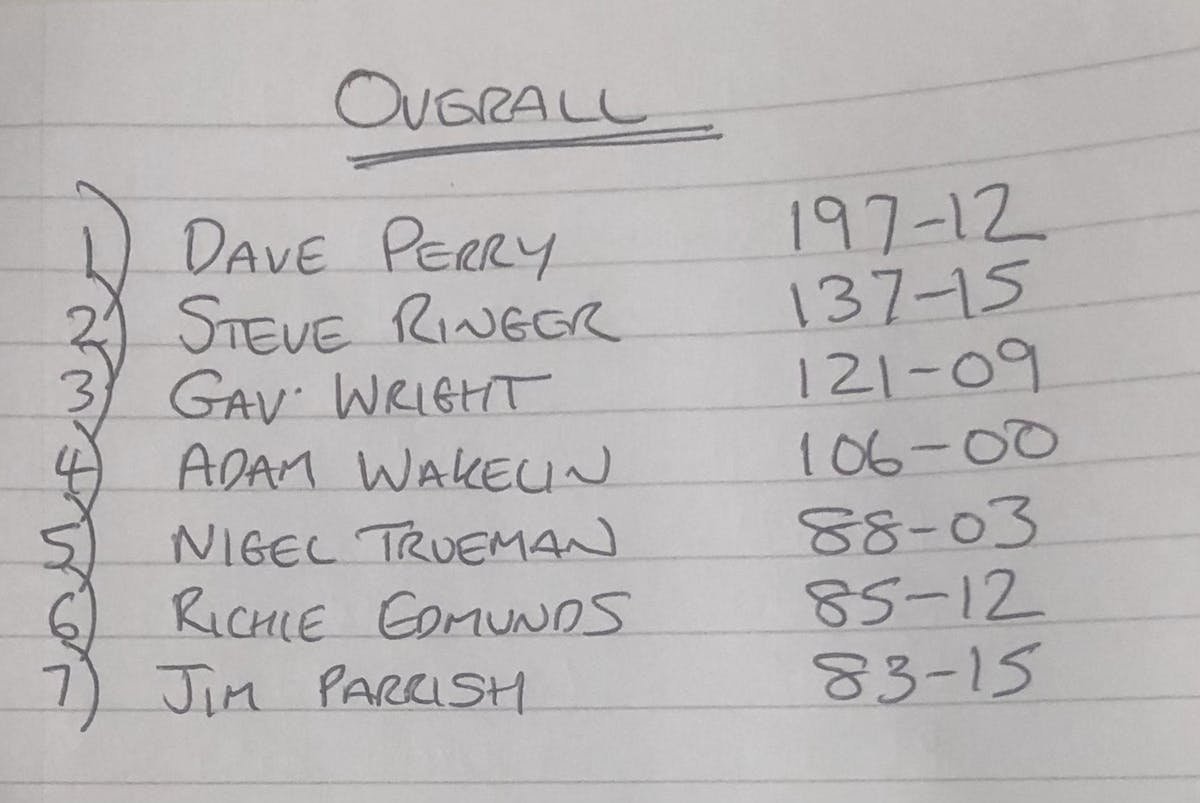 OVERALL
1) DAVE PERRY 197-12
2) STEVE RINGER 137-15
3) GAV. WRIGHT 121-09
4) ADAM WAKELIN 106-00
5) NIGEL TRUEMAN 88-03
6) RICHIE EDMUNDS 85-12
7) JIM PARRISH 83-15